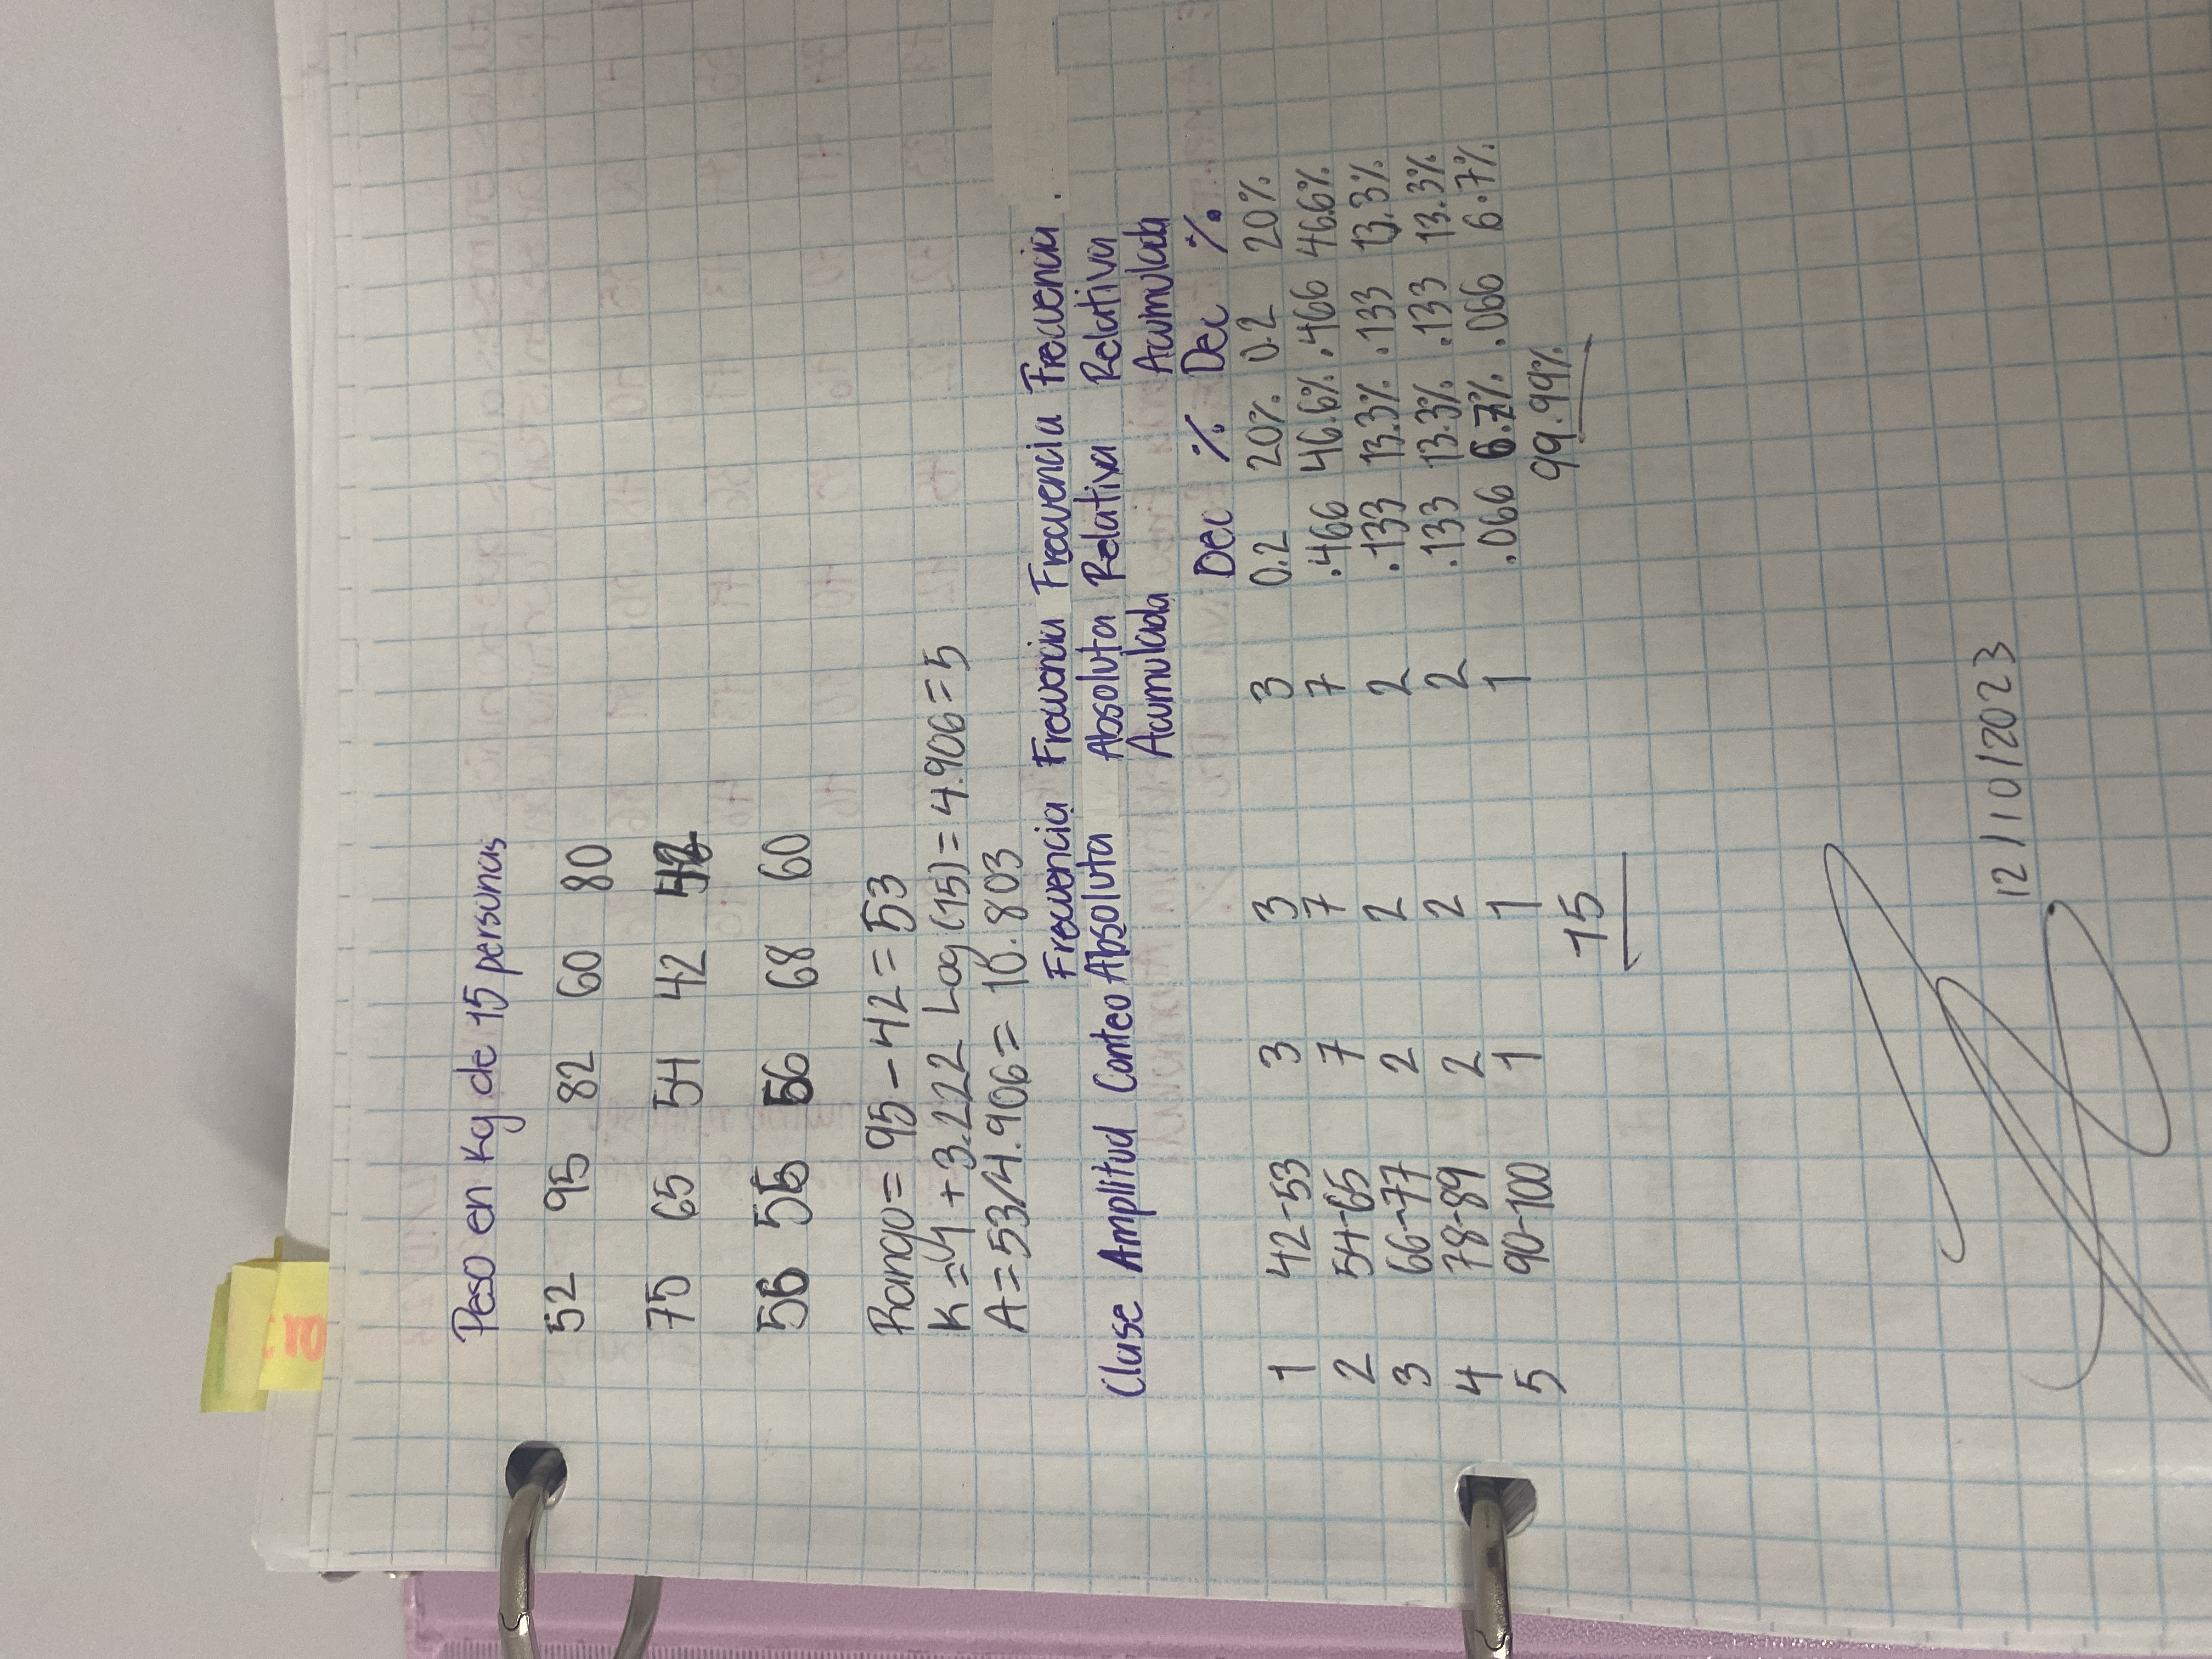 Peso en Kg de 15 personas
52 95 82 60 80
75 65 54 42 42
56 56 56 68 60
Rango = 95 - 42 = 53
K = 1 + 3.222 Log (15) = 4.906 = 5
A = 53/4.906 = 10.803
Clase Amplitud Conteo Frecuencia Absoluta Frecuencia Absoluta Acumulada Frecuencia Relativa Frecuencia Relativa Acumulada
Dec % Dec %
1 42-53 3 3 3 0.2 20% 0.2 20%
2 54-65 7 7 7 .466 46.6% .466 46.6%
3 66-77 2 2 2 .133 13.3% .133 13.3%
4 78-89 2 2 2 .133 13.3% .133 13.3%
5 90-100 1 1 1 .066 6.7% .066 6.7%
15 99.99%
12/10/2023